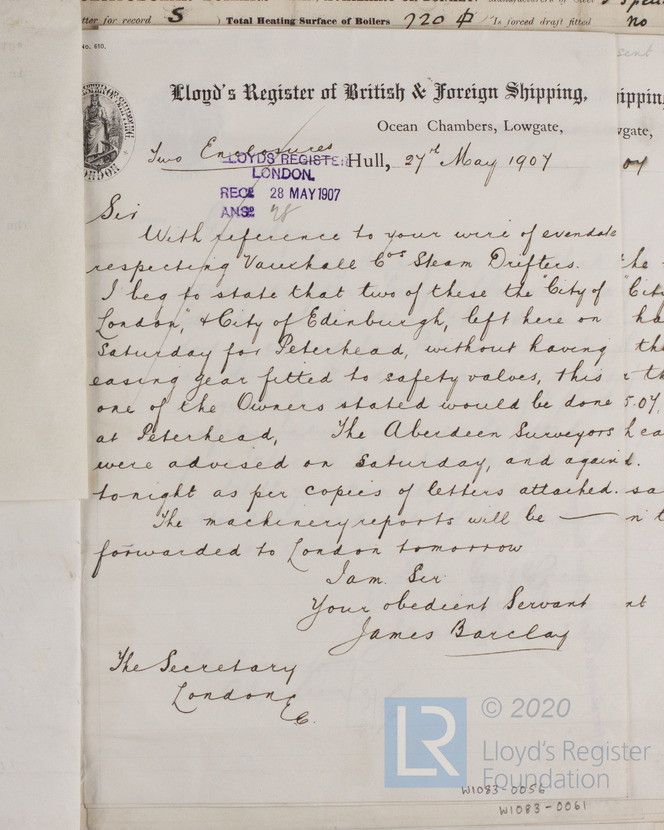 tter for record S ) Total Heating Surface of Boilers 720 ⏀ Is forced draft fitted no
No. 610.
Lloyd's Register of British & Foreign Shipping,
Ocean Chambers, Lowgate,
Two Enclosures
Hull, 27th May 1907
LLOYDS REGISTER
LONDON.
RECD 28 MAY 1907
ANSD
Sir
With reference to your wire of evendate
respecting Vauxhall Cos Steam Drifters.
I beg to state that two of these the "City of
London," & City of Edinburgh, left here on
Saturday for Peterhead, without having
easing gear fitted to safety valves, this
one of the Owners stated would be done
at Peterhead, The Aberdeen Surveyors
were advised on Saturday, and again
tonight as per copies of letters attached.
The machinery reports will be —
forwarded to London tomorrow
I am. Sir
Your obedient Servant
James Barclay
The Secretary
London
E.C.
LR © 2020
Lloyd's Register
Foundation
W1083-0056
W1083-0061